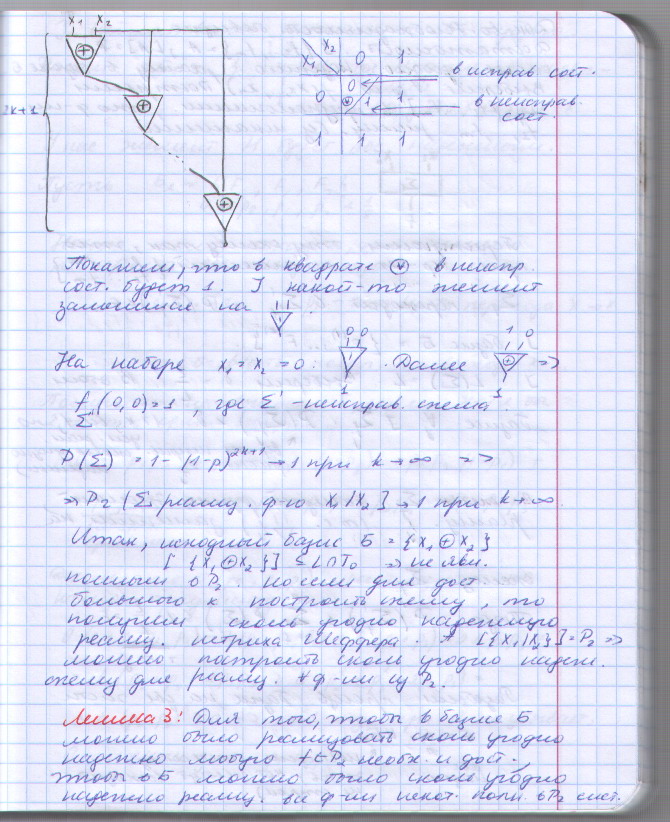 x₁ x₂
⊕
⊕
2k+1
⊕
x₂ 0 1
x₁
0 0 1
1
1 1 1
в исправ сост.
в неисправ.
сост.
Покажем, что в квадрате ⊙ в неиспр.
сост. будет 1. ] какой-то элемент
заменился на
На наборе x₁ = x₂ = 0 . Далее ⊕ =>
0 0
1 0
1
1
f_Σ'(0,0)=1, где Σ' - неисправ. схема
P(Σ) = 1-(1-p)^{2k+1} → 1 при k → ∞ =>
=> P₂ (Σ реализ. ф-ю x₁|x₂) → 1 при k → ∞.
Итак, исходный базис Б = {x₁ ⊕ x₂}
[{x₁ ⊕ x₂}] ⊆ L∩T₀ => не явл.
полным в P₂. но если для дост
большого k построить схему, то
получим сколь угодно надежную
реализ. штриха Шеффера. [{x₁|x₂}] = P₂ =>
можно построить сколь угодно надежн.
схему для реализ. ∀ ф-ии из P₂.
Лемма 3: Для того, чтобы в базисе Б
можно было реализовать сколь угодно
надежно любую f∈P₂ необх. и дост.,
чтобы в Б можно было сколь угодно
надежно реализ. все ф-ии некот. полн. в P₂ сист.